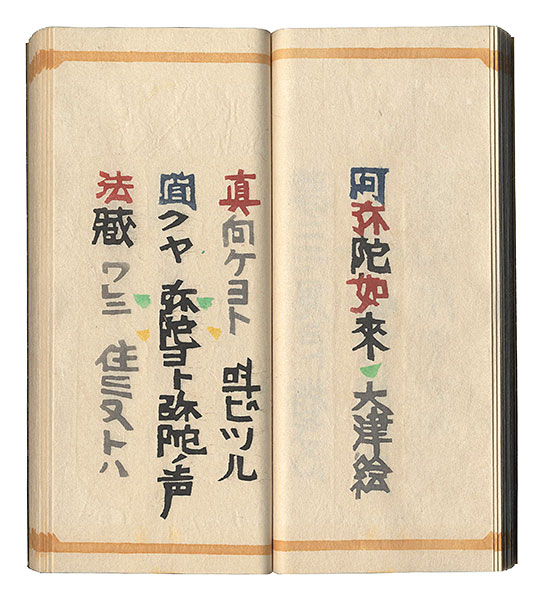 阿弥陀如来 大津絵
真向ケヨト 叫ビツル
聞クヤ 弥陀ヨト弥陀ノ声
法蔵 ワレニ 住ミヌトハ